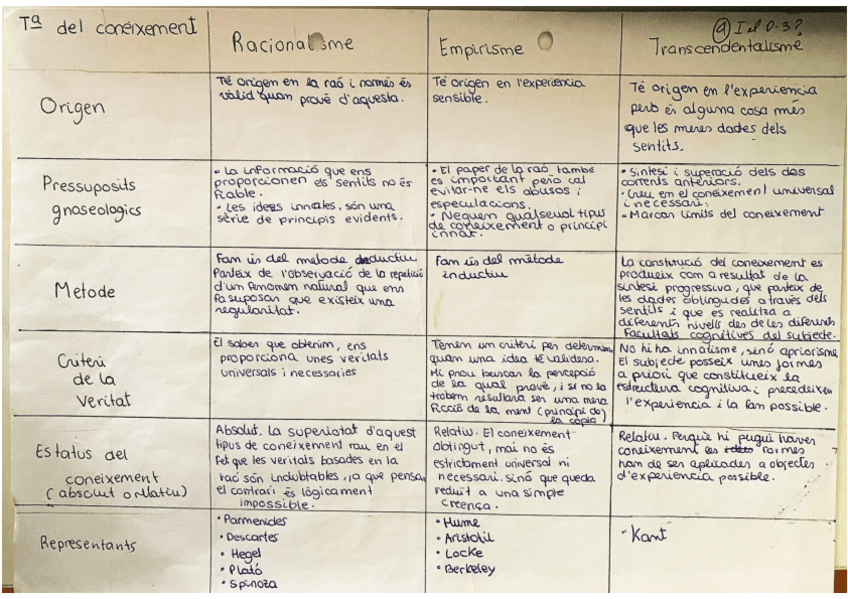 Tª del coneixement
Racionalisme
Empirisme
9 I el 0-3?
Transcendentalisme
Origen
Té origen en la raó i només és
vàlid quan prové d'aquesta.
Té origen en l'experiència
sensible.
Té origen en l'experiencia
però és alguna cosa més
que les meres dades dels
sentits.
Pressuposits
gnoseologics
• La informació que ens
proporcionen els sentits no és
fiable.
• Les idees innates, són una
sèrie de principis evidents.
• El paper de la raó, també
es important però cal
evitar-ne els abusos i
especulacions.
• Neguen qualsevol tipus
de coneixement o principi
innat.
• Sintesi i superació dels dos
corrents anteriors.
• Creu en el coneixement universal
i necessari.
• Marcan límits del coneixement
Metode
Fam ús del metode deductiu
Parteix de l'observació de la repetició
d'un fenomen natural que ens
fa suposar que existeix una
regularitat.
Fam ús del mètode
inductiu
La constitució del coneixement es
produeix com a resultat de la
síntesi progressiva, que parteix de
les dades obtingudes a través dels
sentits i que es realitza a
diferents nivells des de les diferents
facultats cognitives del subjecte.
Criteri
de la
Veritat
El saber que obtenim, ens
proporciona unes veritats
universals i necessaries
Temen un criteri per determinar
quam una idea té validesa.
Hi prou buscar la percepció
de la qual prové, i si no la
trobem resultarà ser una mera
ficció de la ment (principi de)
la còpia)
No hi ha innatisme, sinó apriorisme
El subjecte posseix unes formes
a priori que constitueix la
estructura cognitiva i precedeixen
l'experiencia i la fan possible.
Estatus del
coneixement
(absolut o relatiu)
Absolut. La superiotat d'aquest
tipus de coneixement rau en el
fet que les veritats basades en la
raó són indubtables, ja que pensar
el contrari és lògicament
impossible.
Relatiu. El coneixement
obtingut, mai no és
estrictament universal ni
necessari. Sinó que queda
reduït a una simple
creença.
Relatiu. Perquè hi pugui haver
coneixement les formes
han de ser aplicades a objectes
d'experiencia possible.
Representants
• Parmenides
• Descartes
• Hegel
• Plató
• Spinoza
• Hume
• Aristòtil
• Locke
• Berkeley
- Kant